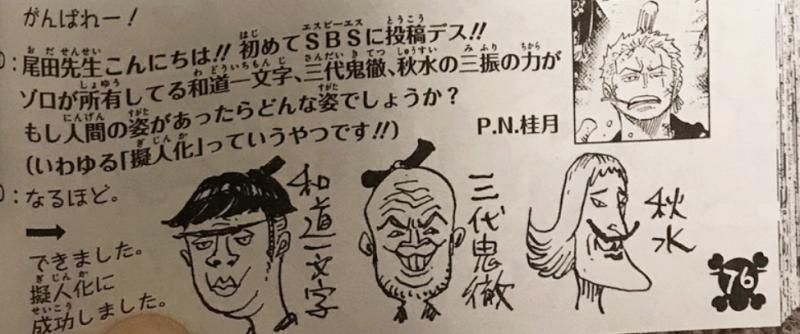 がんばれー!
:尾田先生こんにちは!! 初めてSBSに投稿デス!!
ゾロが所有してる和道一文字、三代鬼徹、秋水の三振の力が
もし人間の姿があったらどんな姿でしょうか?
(いわゆる「擬人化」っていうやつです!!)
P.N.桂月
:なるほど。
➡
できました。
擬人化に
成功しました。
和道一文字
三代鬼徹
秋水
76